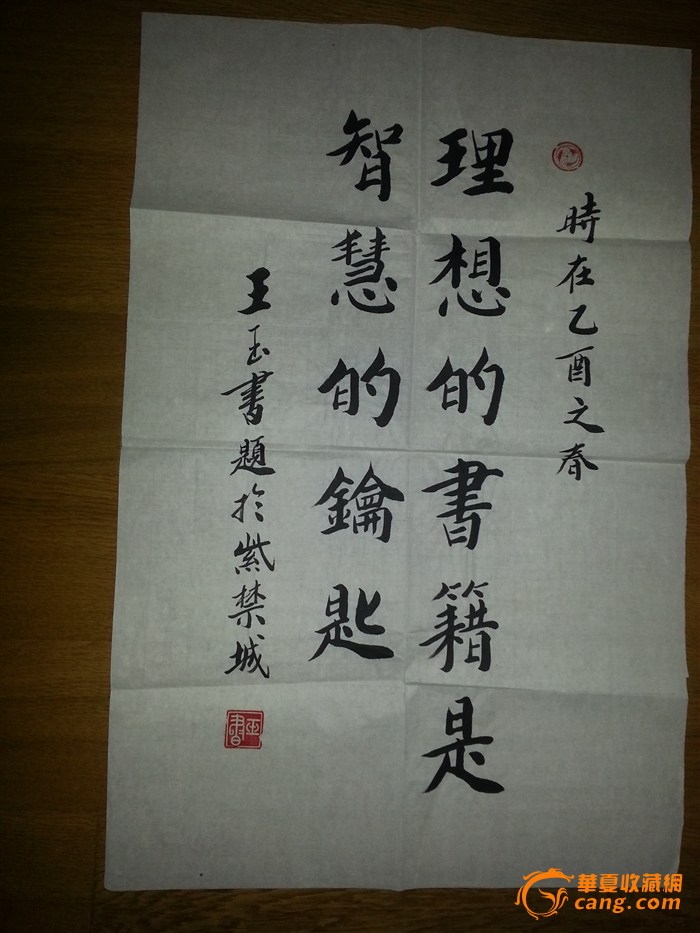 時在乙酉之春
理想的書籍是
智慧的鑰匙
王玉書題於紫禁城
玉書
華夏收藏網
cang.com